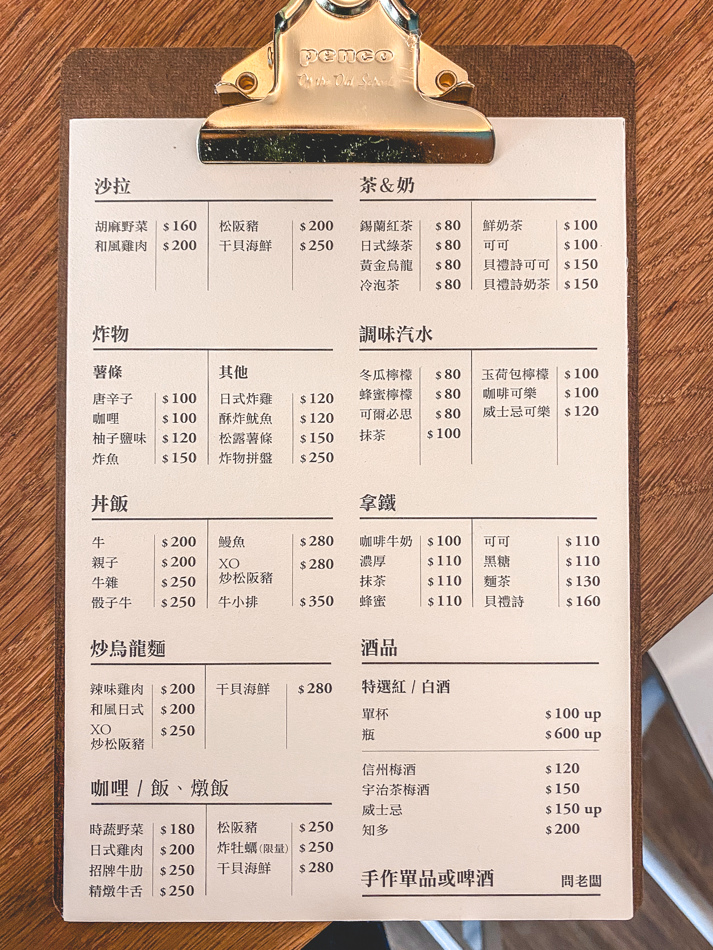 penco
沙拉
胡麻野菜 $160
和風雞肉 $200
松阪豬 $200
干貝海鮮 $250
炸物
薯條
唐辛子 $100
咖哩 $100
柚子鹽味 $120
炸魚 $150
其他
日式炸雞 $120
酥炸魷魚 $120
松露薯條 $150
炸物拼盤 $250
丼飯
牛 $200
親子 $200
牛雜 $250
骰子牛 $250
鰻魚 $280
XO $280
炒松阪豬
牛小排 $350
炒烏龍麵
辣味雞肉 $200
和風日式 $200
XO $250
炒松阪豬
干貝海鮮 $280
咖哩 / 飯、燉飯
時蔬野菜 $180
日式雞肉 $200
招牌牛肋 $250
精燉牛舌 $250
松阪豬 $250
炸牡蠣(限量) $250
干貝海鮮 $280
茶&奶
錫蘭紅茶 $80
日式綠茶 $80
黃金烏龍 $80
冷泡茶 $80
鮮奶茶 $100
可可 $100
貝禮詩可可 $150
貝禮詩奶茶 $150
調味汽水
冬瓜檸檬 $80
蜂蜜檸檬 $80
可爾必思 $80
抹茶 $100
玉荷包檸檬 $100
咖啡可樂 $100
威士忌可樂 $120
拿鐵
咖啡牛奶 $100
濃厚 $110
抹茶 $110
蜂蜜 $110
可可 $110
黑糖 $110
麵茶 $130
貝禮詩 $160
酒品
特選紅 / 白酒
單杯 $100 up
瓶 $600 up
信州梅酒 $120
宇治茶梅酒 $150
威士忌 $150 up
知多 $200
手作單品或啤酒 問老闆